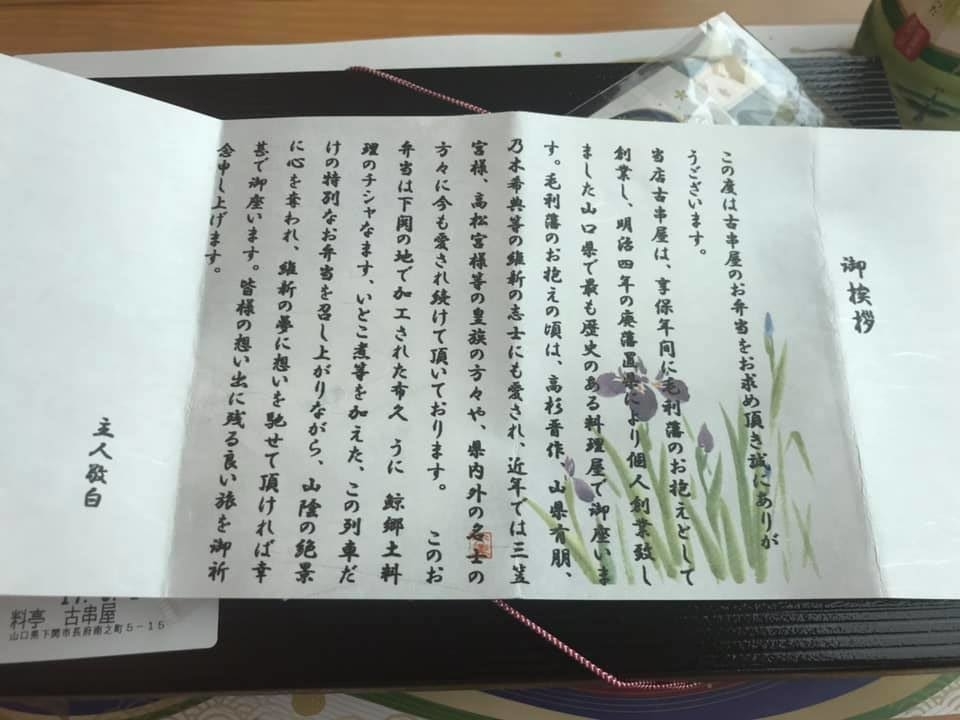 御挨拶
この度は古串屋のお弁当をお求め頂き誠にありが
うございます。
当店古串屋は、享保年間に毛利藩のお抱えとして
創業し、明治四年の廃藩置県により個人創業致し
ました山口県で最も歴史のある料理屋で御座いま
す。毛利藩のお抱えの頃は、高杉晋作、山県有朋、
乃木希典等の維新の志士にも愛され、近年では三笠
宮様、高松宮様等の皇族の方々や、県内外の名士の
方々に今も愛され続けて頂いております。 このお
弁当は下関の地で加工された布久 うに 鯨郷土料
理のチシャなます、いとこ煮等を加えた、この列車だ
けの特別なお弁当を召し上がりながら、山陰の絶景
に心を奪われ、維新の夢に想いを馳せて頂ければ幸
甚で御座います。皆様の想い出に残る良い旅を御祈
念申し上げます。
主人敬白
料亭 古串屋
山口県下関市長府南之町5-15